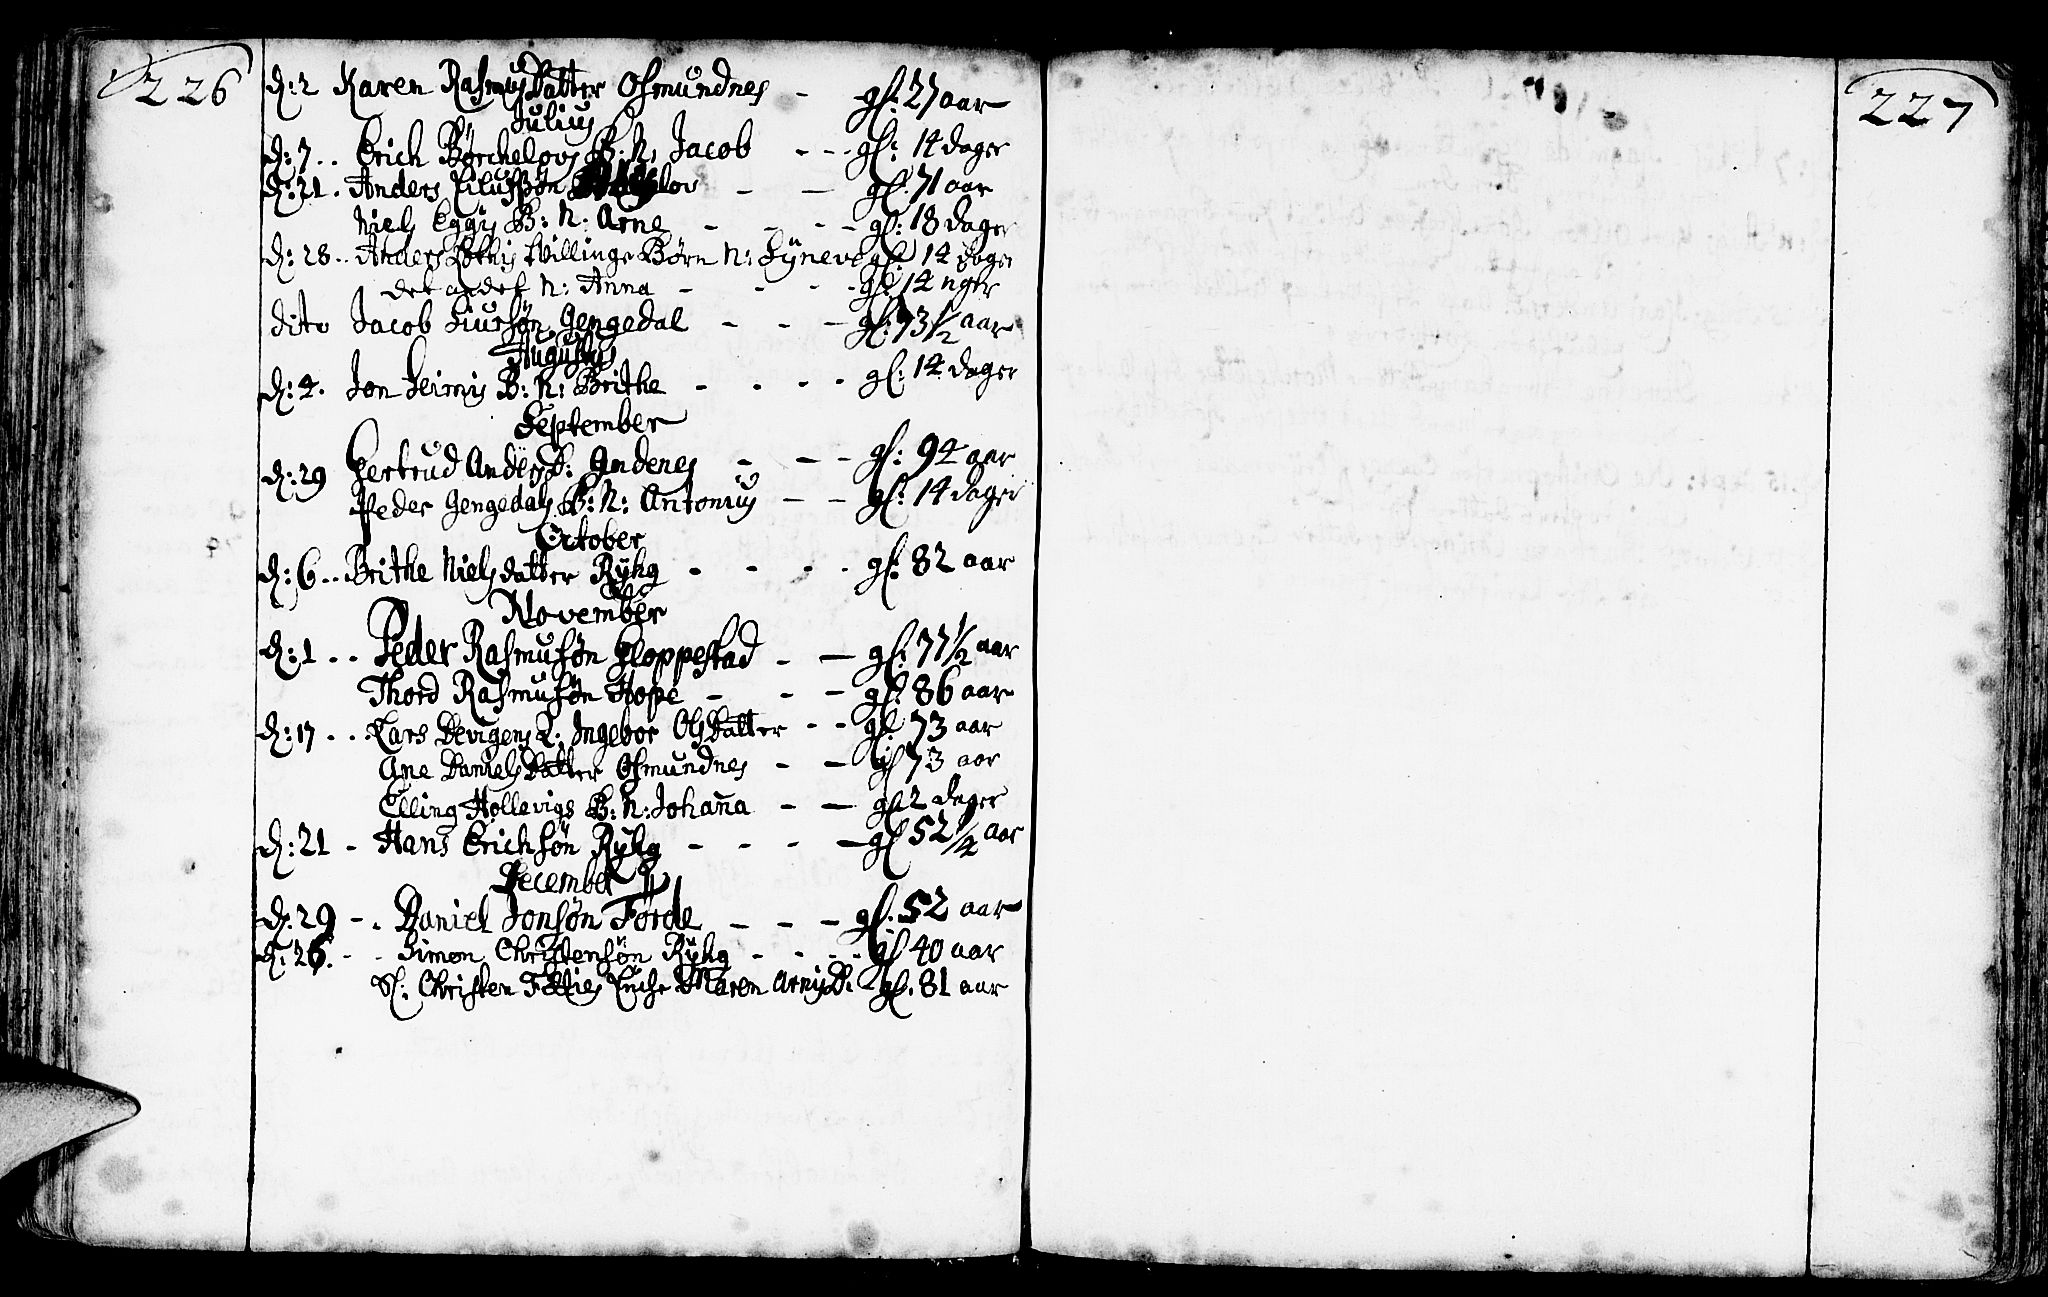 226
d: 2 Karen Rasmusdatter Osmundnes - gl: 27 aar
Julius
d: 7 .. Erich Børchelovs B: N: Jacob - - - gl: 14 dager
d: 21 . Anders - - gl: 71 aar
Niels Eggis B: N: Arne - - - - gl: 18 dager
d: 28 .. Anders tvillinge Børn N: Synneve gl: 14 dager
det andet N: Anna - - - - gl: 14 ugher
dito Jacob Siursøn Gengedal - - - gl: 73 1/2 aar
Augustus
d: 4. Jon Seimis B: N: Brithe - - - - gl: 14 dager
September
d: 29 Gertrud Andersd: Andenes - - - gl: 94 aar
Peder Gengedals B: N: Antonius - - gl: 14 dager
October
d: 6 .. Brithe Nielsdatter Rÿhg - - - - gl: 82 aar
November
d: 1 .. Peder Rasmusøn Gloppestad - - gl: 77 1/2 aar
Thord Rasmusøn Hope - - - gl: 86 aar
d: 17 .. Lars Devigens Q: Ingebor Olsdatter - - gl: 73 aar
Ane Danielsdatter Osmundnes - - gl 73 aar
Elling Hollevigs B: N: Johaña - - gl 2 dager
d: 21 - Hans Erichsøn Rÿhg - - - - gl 52 1/4 aar
December
d: 29 - . Daniel Jonsøn Førde - - - gl. 52 aar
d: 26. - - Simon Christensøn Rÿhg - - - - gl 40 aar
Sl: Christen Enche Maren gl. 81 aar
227